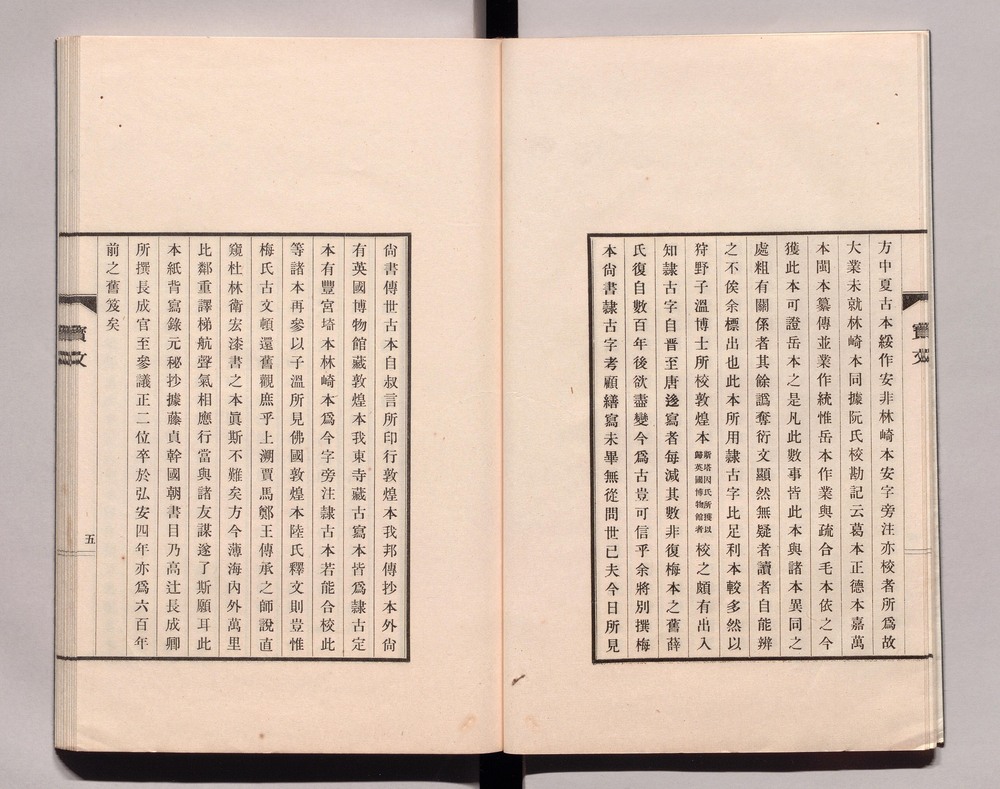 方中夏古本綏作安非林崎本安字旁注亦校者所爲故
大業未就林崎本同據阮氏校勘記云葛本正德本嘉萬
本閩本纂傳並業作統惟岳本作業與疏合毛本依之今
獲此本可證岳本之是凡此數事皆此本與諸本異同之
處粗有關係者其餘譌奪衍文顯然無疑者讀者自能辨
之不俟余標出也此本所用隸古字比足利本較多然以
狩野子溫博士所校敦煌本斯塔因氏所獲以歸英國博物館者校之頗有出入
知隸古字自晋至唐逸寫者每減其數非復梅本之舊薛
氏復自數百年後欲盡變今爲古豈可信乎余將別撰梅
本尙書隸古字考顧繕寫未畢無從問世已夫今日所見
尙書傳世古本自叔言所印行敦煌本我邦傳抄本外尙
有英國博物館藏敦煌本我東寺藏古寫本皆爲隸古定
本有豐宮埼本林崎本爲今字旁注隸古本若能合校此
等諸本再參以子溫所見佛國敦煌本陸氏釋文則豈惟
梅氏古文頓還舊觀庶乎上溯賈馬鄭王傳承之師說直
窺杜林衛宏漆書之本眞斯不難矣方今薄海內外萬里
比鄰重譯梯航聲氣相應行當與諸友謀遂了斯願耳此
本紙背寫錄元秘抄據藤貞幹國朝書目乃高辻長成卿
所撰長成官至參議正二位卒於弘安四年亦爲六百年
前之舊笈矣
五